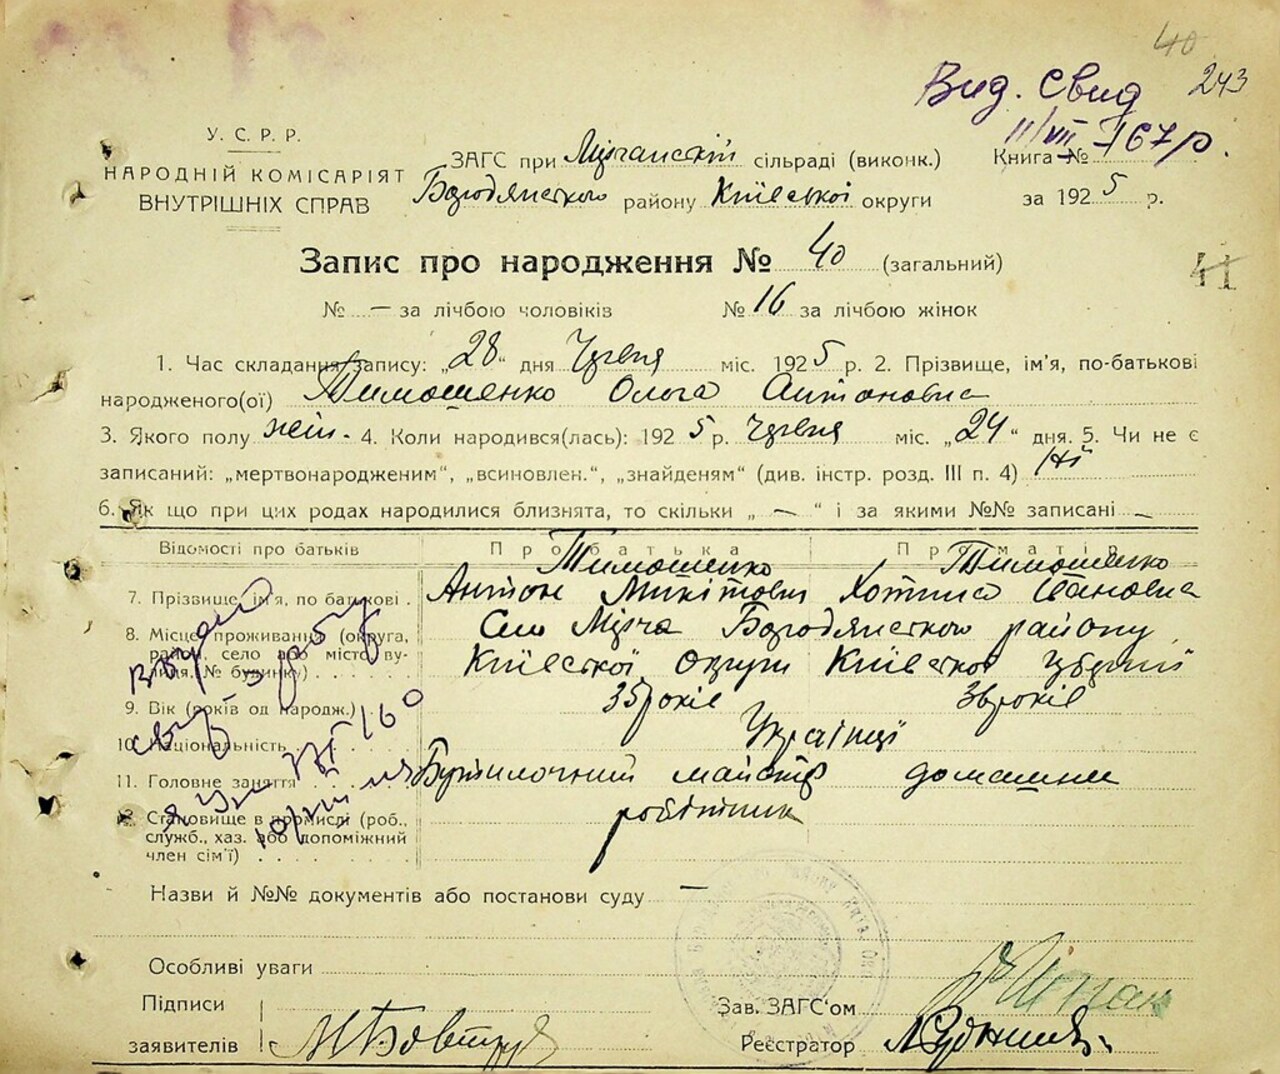 40
243
Вид. Свид
11/VII-67р.
У.С.Р.Р.
НАРОДНІЙ КОМІСАРІЯТ
ВНУТРІШНІХ СПРАВ
ЗАГС при Мірчанській сільраді (виконк.)
Бородянського району Київської округи
Книга №
за 1925 р.
Запис про народження № 40 (загальний)
41
№ — за лічбою чоловіків № 16 за лічбою жінок
1. Час складання запису: „28“ дня Червня міс. 1925 р. 2. Прізвище, ім'я, по-батькові
народженого(ої) Тимошенко Ольга Антоновна
3. Якого полу жін. 4. Коли народився(лась): 1925 р. Червня міс. „24“ дня. 5. Чи не є
записаний: „мертвонародженим“, „всиновлен.“, „знайденям“ (див. інстр. розд. III п. 4) Ні
6. Як що при цих родах народилися близнята, то скільки „ — “ і за якими №№ записані —
Відомості про батьків Про батька Про матір
Тимошенко Тимошенко
7. Прізвище, ім'я, по батькові . Антон Микітович Хотина Івановна
8. Місце проживання (округа, Село Мірча Бородянського району
район, село або місто ву-
лиця, № будинку) Київської Округи Київської Губернії
9. Вік (років од народж.) 35 років 38 років
10. Національність Українці
11. Головне заняття Бутилочний майстер домашня
12. Становище в промислі (роб., робітник
служб., хаз. або допоміжний
член сім'ї)
Назви й №№ документів або постанови суду —
Особливі уваги
Підписи
заявителів
Зав. ЗАГС'ом
Реєстратор